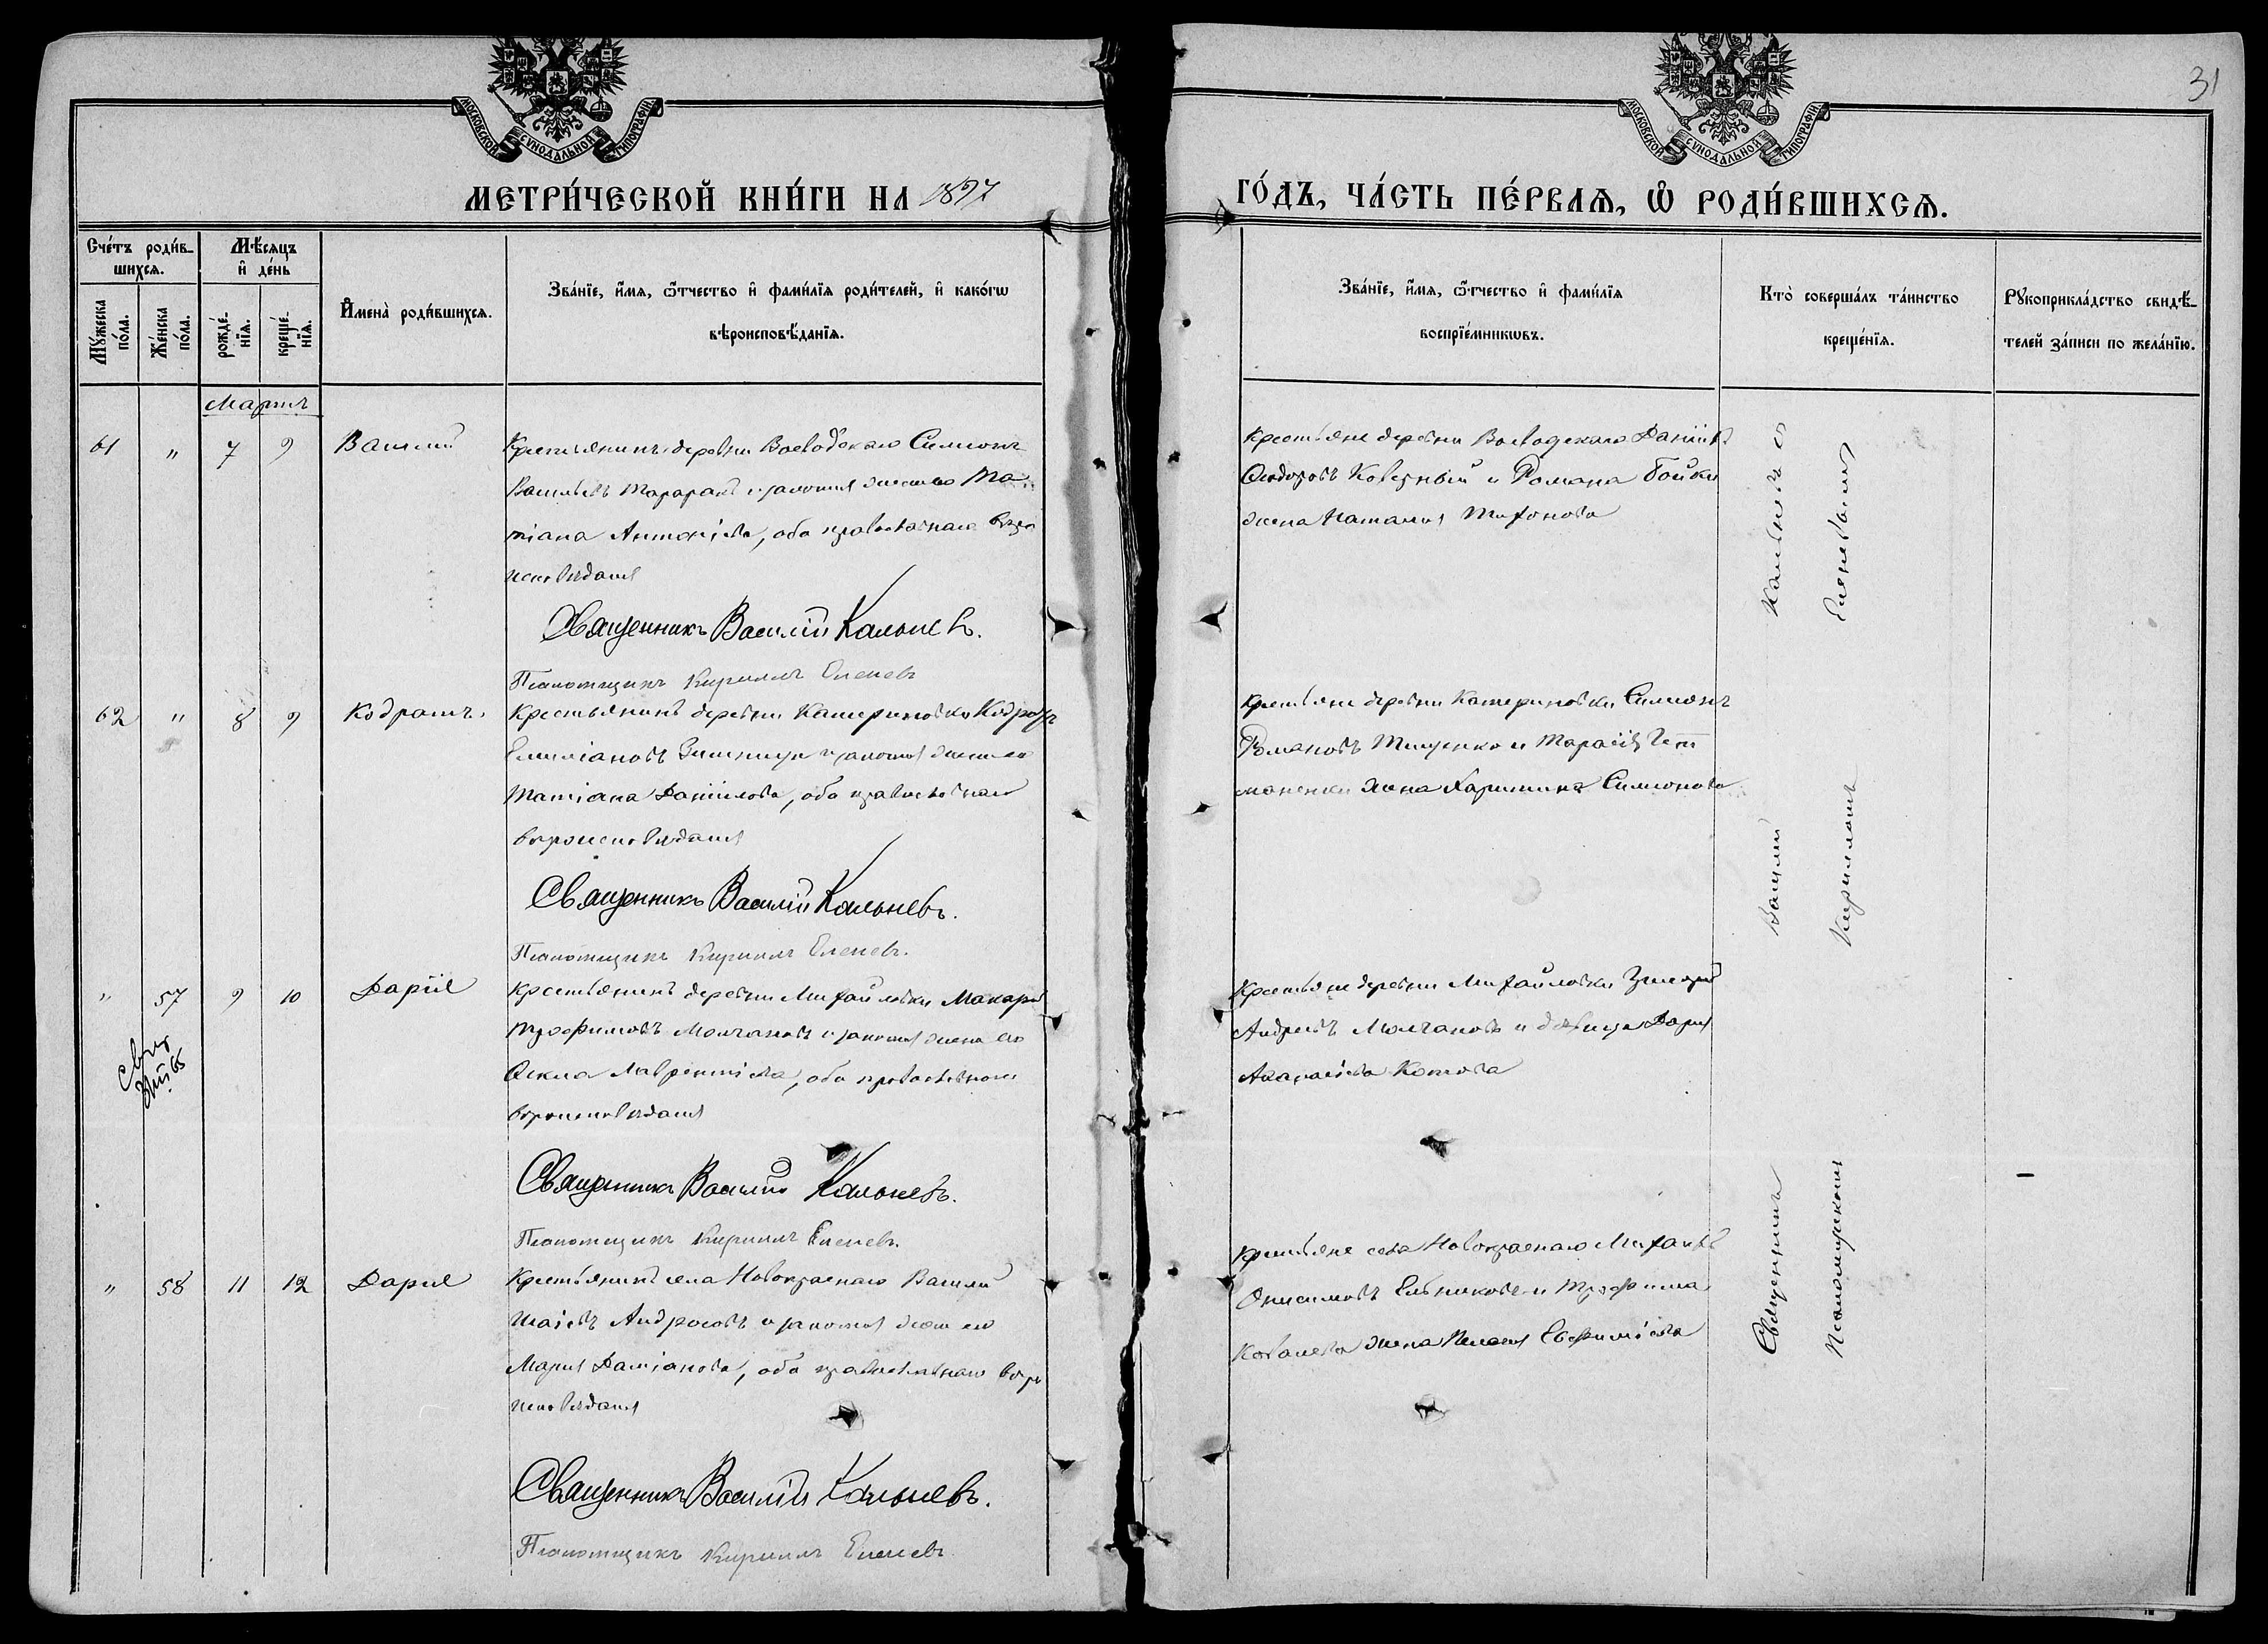 31
МОСКОВСКОЙ СѴНОДАЛЬНОЙ ТИПОГРАФІИ
МОСКОВСКОЙ СѴНОДАЛЬНОЙ ТИПОГРАФІИ
МЕТРИ́ЧЕСКОЙ КНИ́ГИ НА 1897
ГО́ДЪ, ЧА́СТЬ ПЕ́РВАѦ, Ѡ҆ РОДИ́ВШИХСѦ.
Сче́тъ роди́в-
шихсѧ.
Мѣ́сѧцъ
и҆ де́нь
Мꙋ́жеска
по́ла.
Же́нска
по́ла.
рожде́-
нїѧ.
креще́-
нїѧ.
И҆мена̀ роди́вшихсѧ.
Зва́нїе, и҆́мѧ, ѻ҆́тчество и҆ фами́лїѧ роди́телей, и҆ како́гѡ
вѣроисповѣ́данїѧ.
Зва́нїе, и҆́мѧ, ѻ҆́тчество и҆ фами́лїѧ
воспрїе́мникѡвъ.
Кто̀ соверша́лъ та́инство
креще́нїѧ.
Рꙋкоприкла́дство свидѣ́-
телей за́писи по жела́нїю.
Мартъ
61 " 7 9 Василій
Крестьянинъ деревни Воеводскаго Симеонъ
Васильевъ и законная жена его Та-
тіана Антоніева, оба православнаго вѣро
исповѣданія
Священникъ Василій Кальневъ.
Псаломщикъ Кириллъ Еленевъ
Крестьяне деревни Воеводскаго Даніилъ
Ѳеодоровъ Коверный и Романа Бойки
жена Наталія Тихонова
62 " 8 9 Кодратъ.
Крестьянинъ деревни Катериновки Кодратъ
Емиліановъ и законная жена его
Татіана Даніилова, оба православнаго
вѣроисповѣданія
Священникъ Василій Кальневъ.
Псаломщикъ Кириллъ Еленевъ.
Крестьяне деревни Катериновки Симеонъ
Романовъ Тищенко и Тарасія Гет
маненки жена Харитина Симонова
" 57 9 10 Дарія
Крестьянинъ деревни Михайловки Макарій
Трофимовъ Молчановъ и законная жена его
Ѳекла Лаврентіева, оба православнаго
вѣроисповѣданія
Священникъ Василій Кальневъ.
Псаломщикъ Кириллъ Еленевъ.
Крестьяне деревни Михайловки Григорій
Андреевъ Молчановъ и дѣвица Дарія
Аѳанасіева Котова
" 58 11 12 Дарія
Крестьянинъ села Новокраснаго Василій
Исаіевъ Андросовъ и законная жена его
Марія Даміанова, оба православнаго вѣро
исповѣданія
Священникъ Василій Кальневъ.
Псаломщикъ Кириллъ Еленевъ
Крестьяне села Новокраснаго Михаилъ
Онисимовъ Ельниковъ и Трофима
Ковалева жена Пелагія Евфиміева
Священникъ Василій Кальневъ съ
Псаломщикомъ Кирилломъ Еленевымъ